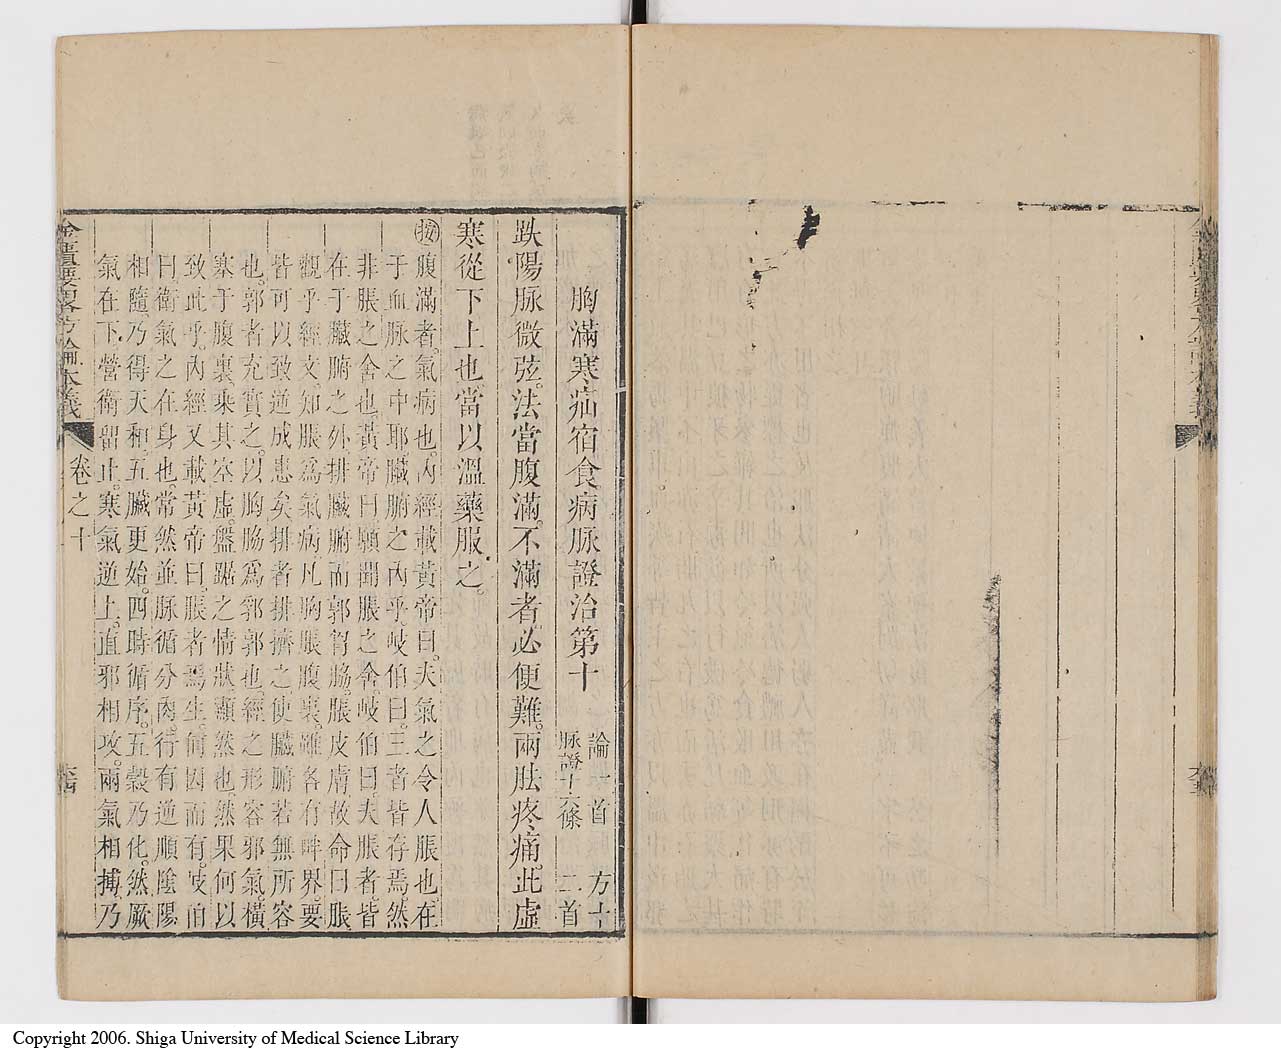 胸滿寒疝宿食病脉證治第十
論一首
脉證十六條
方十
二首
趺陽脉微弦。法當腹滿。不滿者。必便難。兩胠疼痛。此虛
寒從下上也。當以溫藥服之。
按腹滿者。氣病也。內經載黃帝曰。夫氣之令人脹也。在
于血脉之中耶。臟腑之內乎。岐伯曰。三者皆存焉。然
非脹之舍也。黃帝曰願聞脹之舍。岐伯曰。夫脹者。皆
在于臟腑之外。排臟腑而郭胷脇。脹皮膚。故命曰脹
觀乎經文。知脹爲氣病。凡胸脹腹裏。雖各有畔界。要
皆可以致逆成患矣。排者。排擠之。使臟腑若無所容
也。郭者。充實之。以胸脇爲郭郭也。經之形容邪氣。橫
塞于腹裏。乘其空虛。盤踞之情狀。顯然也。然果何以
致此乎。內經又載黃帝曰。脹者焉生。何因而有。岐伯
曰。衛氣之在身也。常然並脉循分肉。行有逆順。陰陽
相隨。乃得天和。五臟更始。四時循序。五穀乃化。然厥
氣在下。營衛留止。寒氣逆上。眞邪相攻。兩氣相搏。乃
金匱要畧方論本義
卷之十
六四
Copyright 2006. Shiga University of Medical Science Library